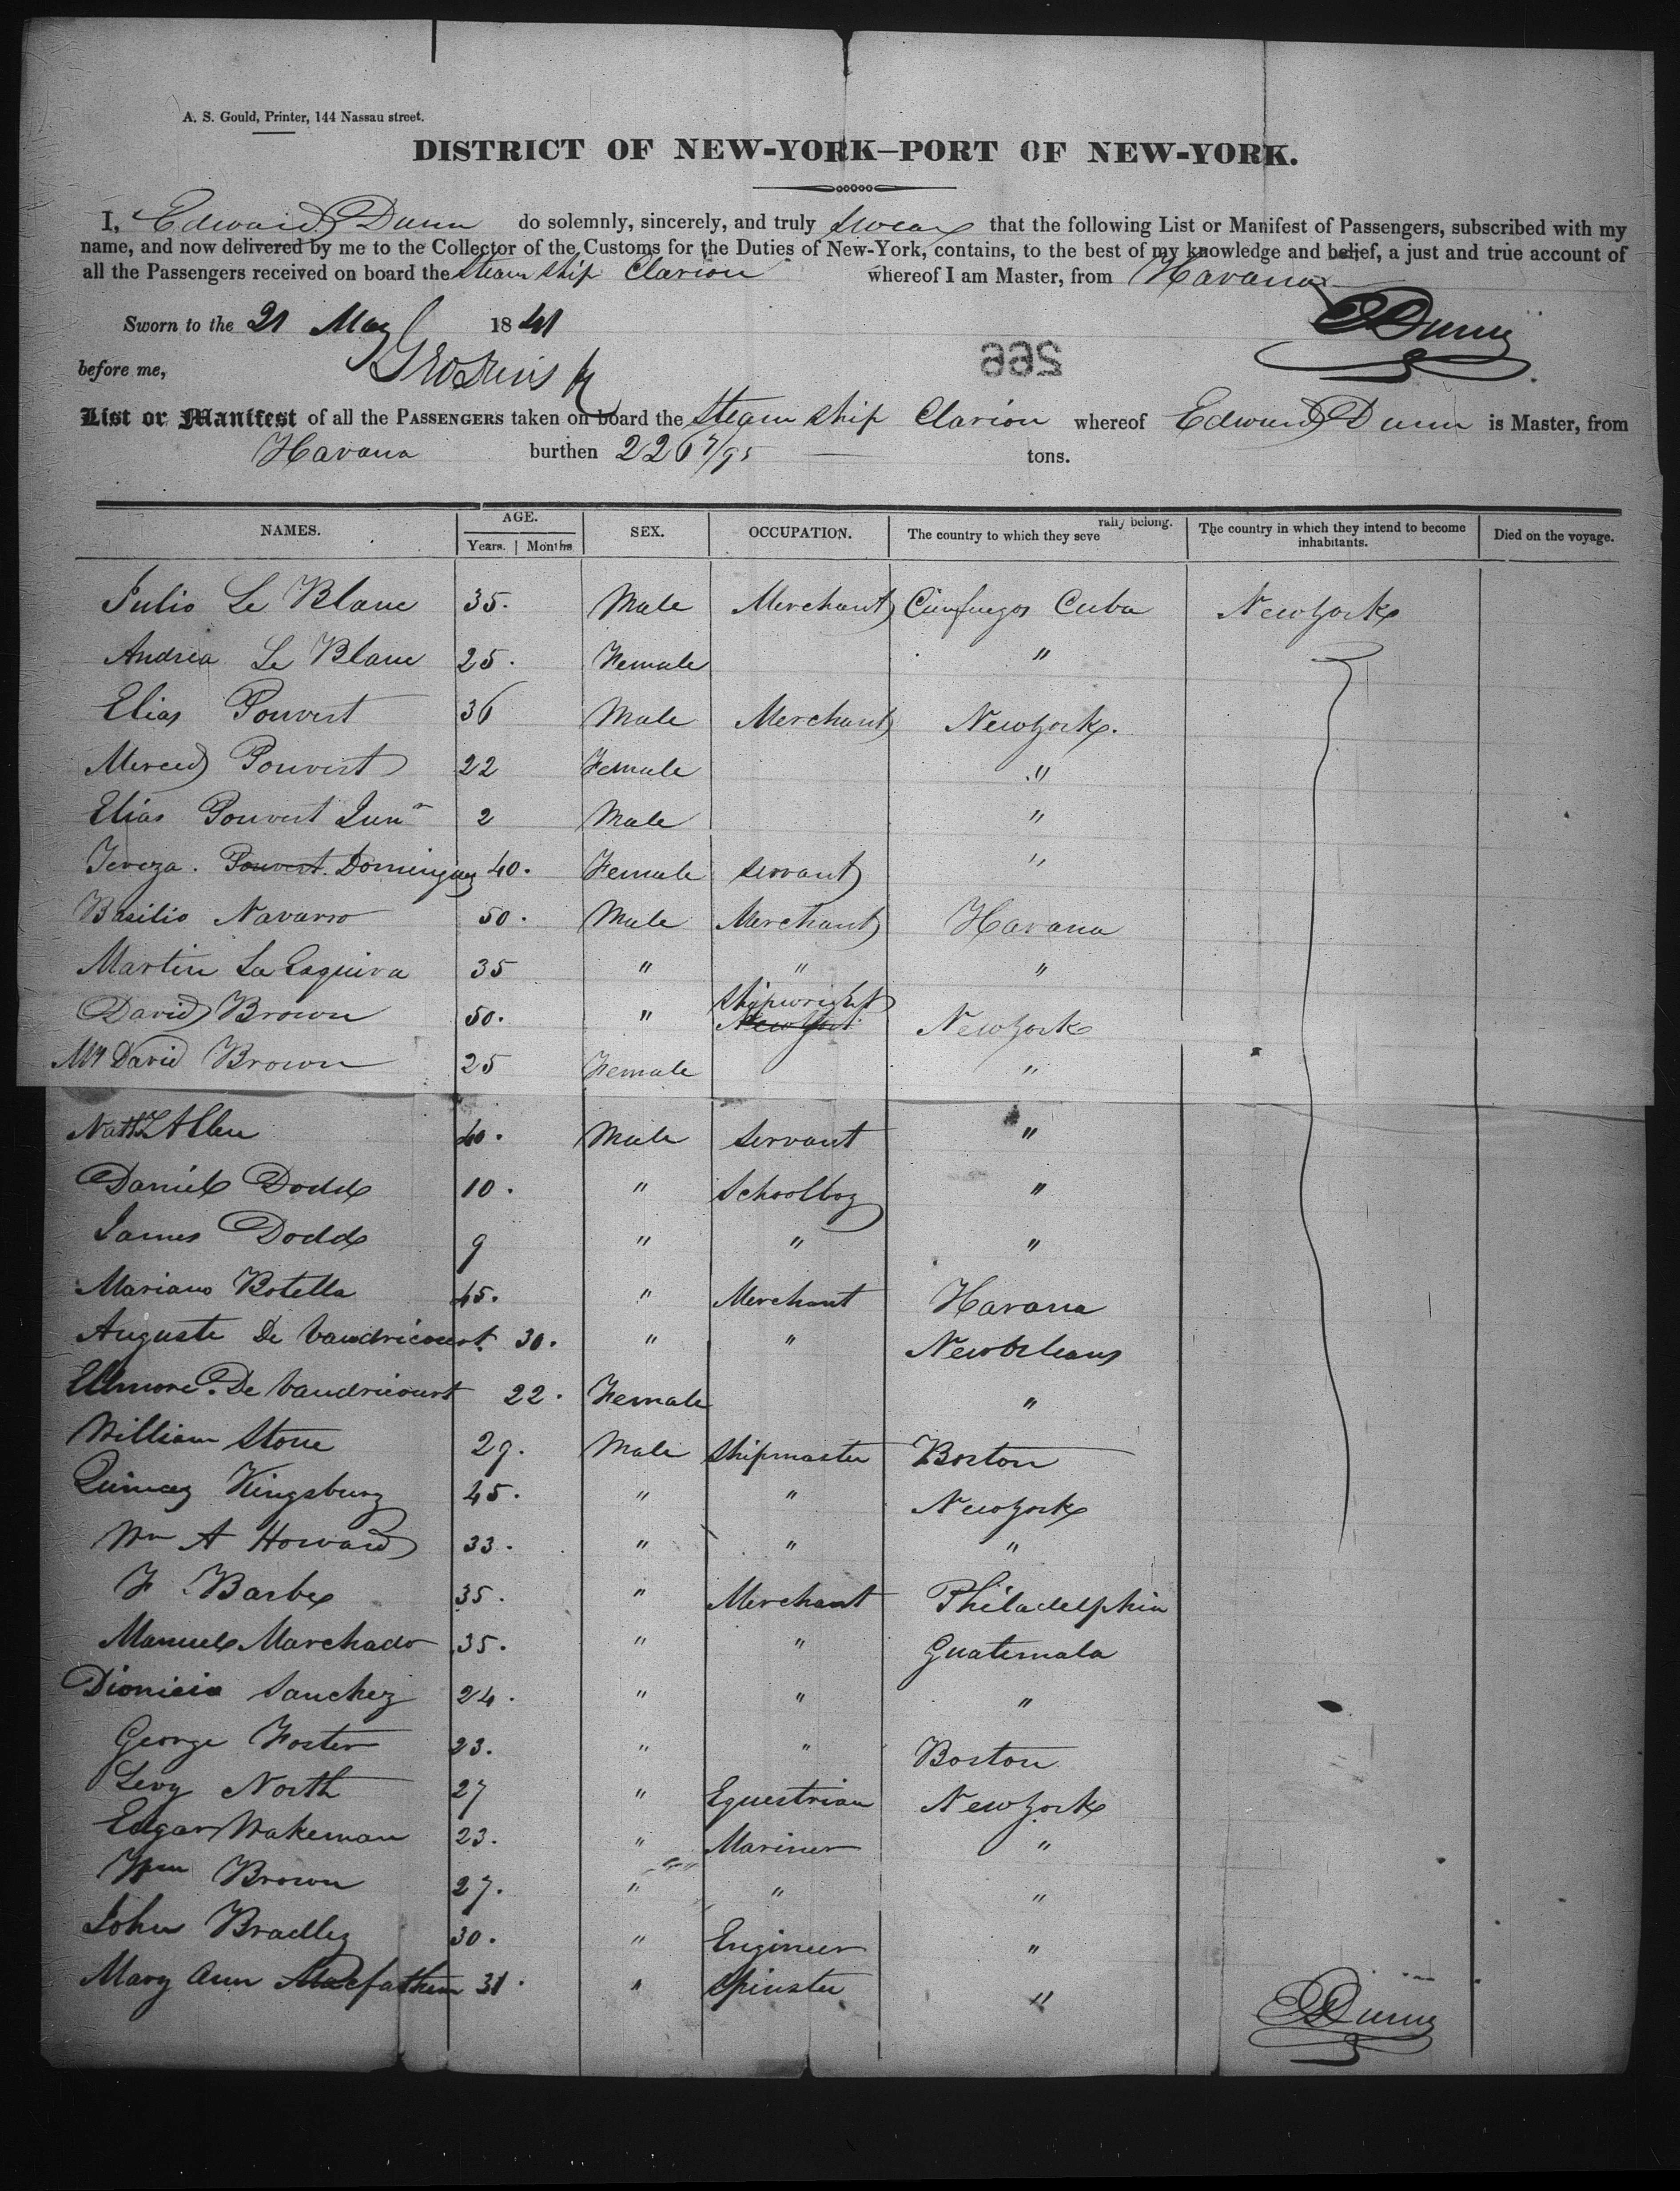 A. S. Gould, Printer, 144 Nassau street.
DISTRICT OF NEW-YORK–PORT OF NEW-YORK.
I, Edward Dunn do solemnly, sincerely, and truly swear that the following List or Manifest of Passengers, subscribed with my
name, and now delivered by me to the Collector of the Customs for the Duties of New-York, contains, to the best of my knowledge and belief, a just and true account of
all the Passengers received on board the Steam Ship Clarion whereof I am Master, from Havana
E Dunn
Sworn to the 21 May 1841
before me,
List or Manifest of all the PASSENGERS taken on board the Steam Ship Clarion whereof Edward Dunn is Master, from
Havana burthen 226 7/95 tons.
NAMES. AGE. Years. Months SEX. OCCUPATION. The country to which they severally belong. The country in which they intend to become inhabitants. Died on the voyage.
Julio Le Blanc 35. Male Merchant Cienfuegos Cuba New York
Andrea Le Blanc 25. Female "
Elias Pouvert 36 Male Merchant New York.
Merced Pouvert 22 Female "
Elias Pouvert Junr 2 Male "
Tereza. Pouvert. Dominguez 40. Female Servant "
Basilio Navarro 50. Male Merchant Havana
Martin La Esquiva 35 " " "
David Brown 50. " Shipwright New York New York
Mrs David Brown 25 Female "
Nathl Allen 40. Male Servant "
Daniel Dodd 10. " Schoolboy "
James Dodd 9 " " "
Mariano Botella 45. " Merchant Havana
Auguste De Vaudricourt. 30. " " New Orleans
De Vaudricourt 22. Female "
William Stone 29. Male Shipmaster Boston
Quincy Kingsbury 45. " " New York
Wm A Howard 33. " " "
F Barbe 35. " Merchant Philadelphia
Manuel Marchado 35. " " Guatemala
Dionicia Sanchez 24. " " "
George Foster 23. " " Boston
Levy North 27 " Equestrian New York
Edgar Wakeman 23. " Mariner "
Wm Brown 27. " " "
John Bradley 30. " Engineer "
Mary Ann Macfathem 31. " Spinster "
E Dunn